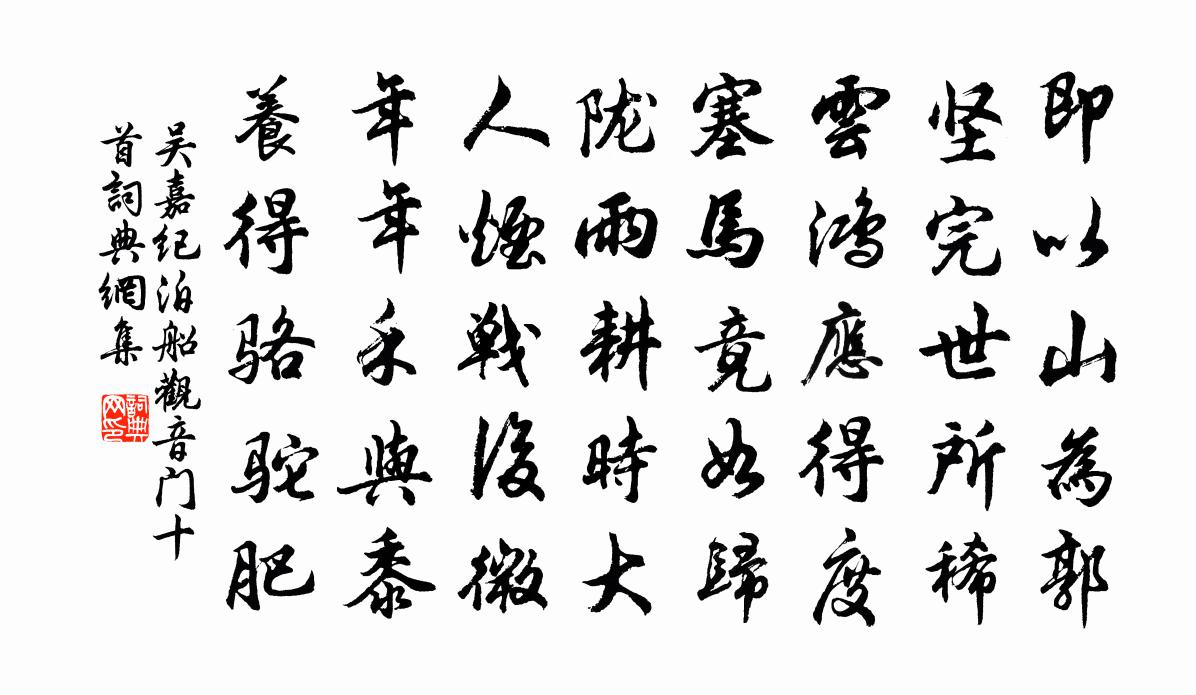 即以山為郭
坚完世所稀
雲鴻應得度
塞馬竟如歸
陇雨耕時大
人煙戦後微
年年禾與黍
養得骆驼肥
吴嘉纪泊船觀音门十
首詞典網集
詞典
网印